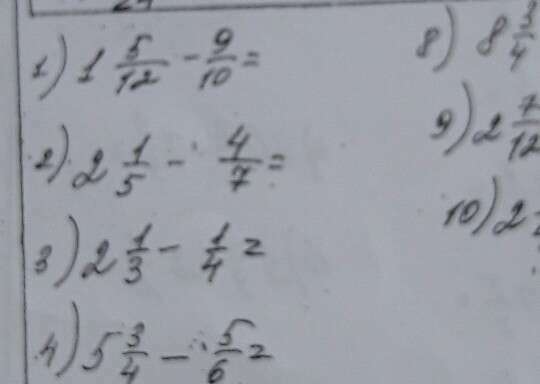 1) 1 5/12 - 9/10 =
2) 2 1/5 - 4/7 =
3) 2 1/3 - 1/4 =
4) 5 3/4 - 5/6 =
8) 8 3/4
9) 2 7/12
10) 2